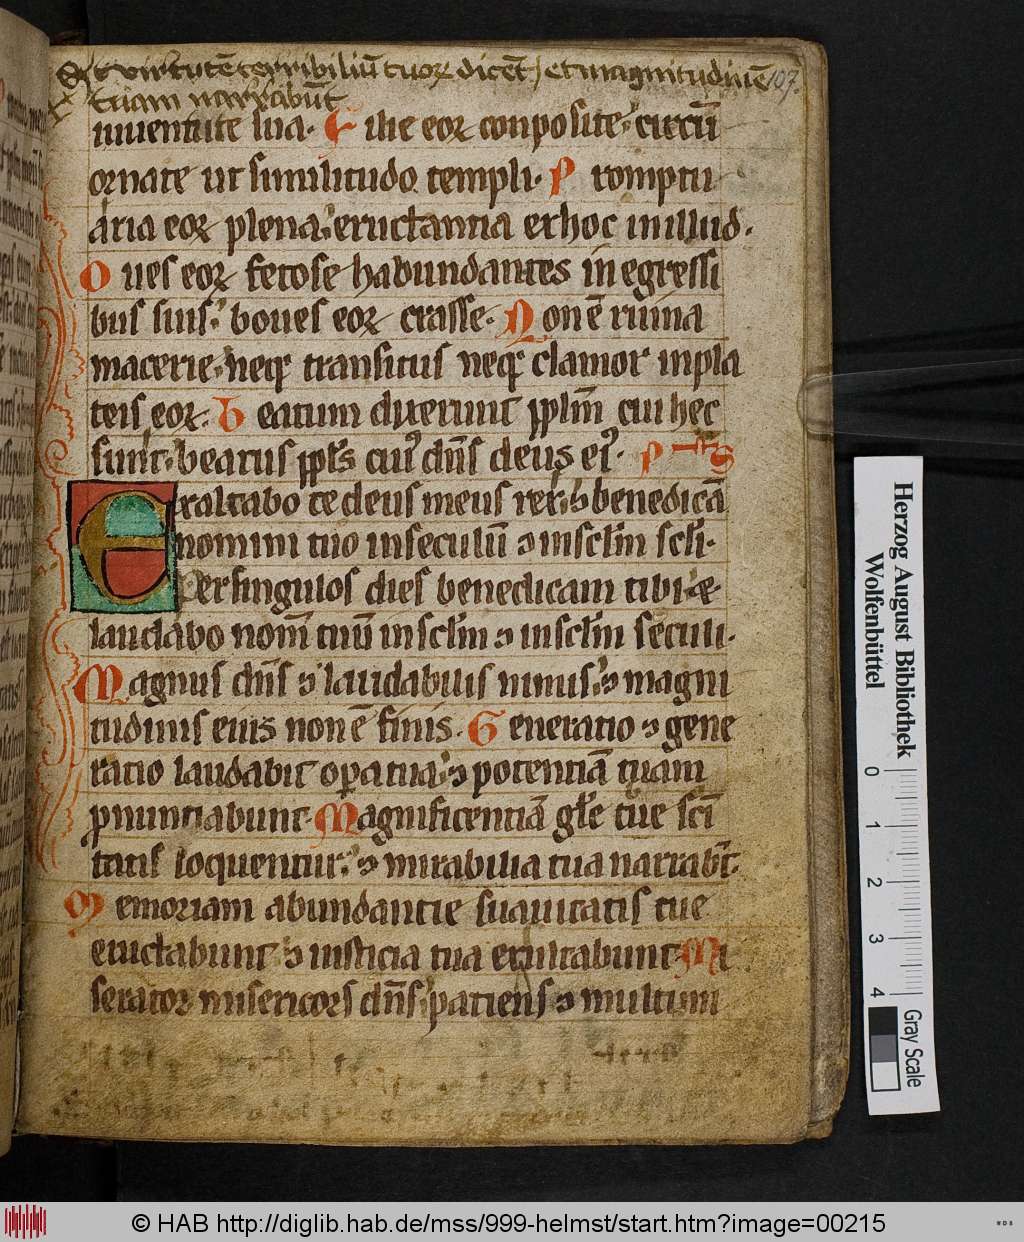 Et virtutē terribiliū tuoꝝ dicēt / et magnitudinē 107.
tuam narrabūt
iuuentute sua. F ilie eoꝝ conposite: circū
ornate ut similitudo templi. P romptu
aria eoꝝ plena: eructantia ex hoc in illud.
O ues eoꝝ fetose habundantes in egressi
bus suis: boues eoꝝ crasse. N on ē ruina
macerie: neqꝫ transitus neqꝫ clamor in pla
teis eoꝝ. B eatum dixerunt pplm̄ cui hec
sunt: beatus ppl's cui' dn̄s deus ei'.
Exaltabo te deus meus rex: ⁊ benedicā
nomini tuo in seculū ⁊ in sclm̄ scli.
Per singulos dies benedicam tibi: et
laudabo nom̄ tuū in sclm̄ ⁊ in sclm̄ seculi.
Magnus dn̄s ⁊ laudabilis nimis: ⁊ magni
tudinis eius non ē finis. G eneratio ⁊ gene
ratio laudabit oꝑa tua: ⁊ potentiā tuam
ꝓnuntiabunt. Magnificentiā gl'e tue sc̄i
tatis loquentur: ⁊ mirabilia tua narrabt̄.
M emoriam abundantie suauitatis tue
eructabunt ⁊ iusticia tua exultabunt. Mi
serator misericors dn̄s: patiens ⁊ multum
Herzog August Bibliothek
Wolfenbüttel
0 1 2 3 4
Gray Scale
© HAB http://diglib.hab.de/mss/999-helmst/start.htm?image=00215